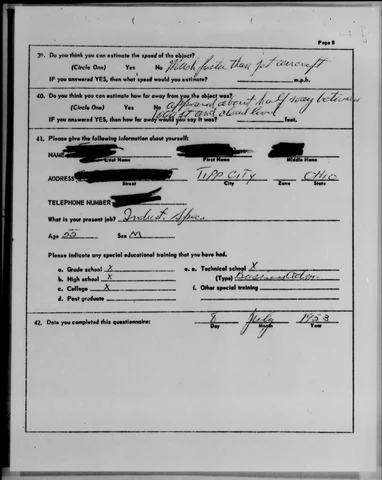 Page 8
39. Do you think you can estimate the speed of the object?
(Circle One) Yes No Much faster than jet aircraft
IF you answered YES, then what speed would you estimate? m.p.h.
40. Do you think you can estimate how far away from you the object was?
(Circle One) Yes No appeared about half way between
and cloud level
IF you answered YES, then how far away would you say it was? feet.
41. Please give the following information about yourself:
NAME
Last Name First Name Middle Name
ADDRESS TIPP CITY OHIO
Street City Zone State
TELEPHONE NUMBER
What is your present job? Indust.
Age 55 Sex M
Please indicate any special educational training that you have had.
a. Grade school X e. Technical school X
b. High school X (Type)
c. College X f. Other special training
d. Post graduate
42. Date you completed this questionnaire: 8 July 1953
Day Month Year